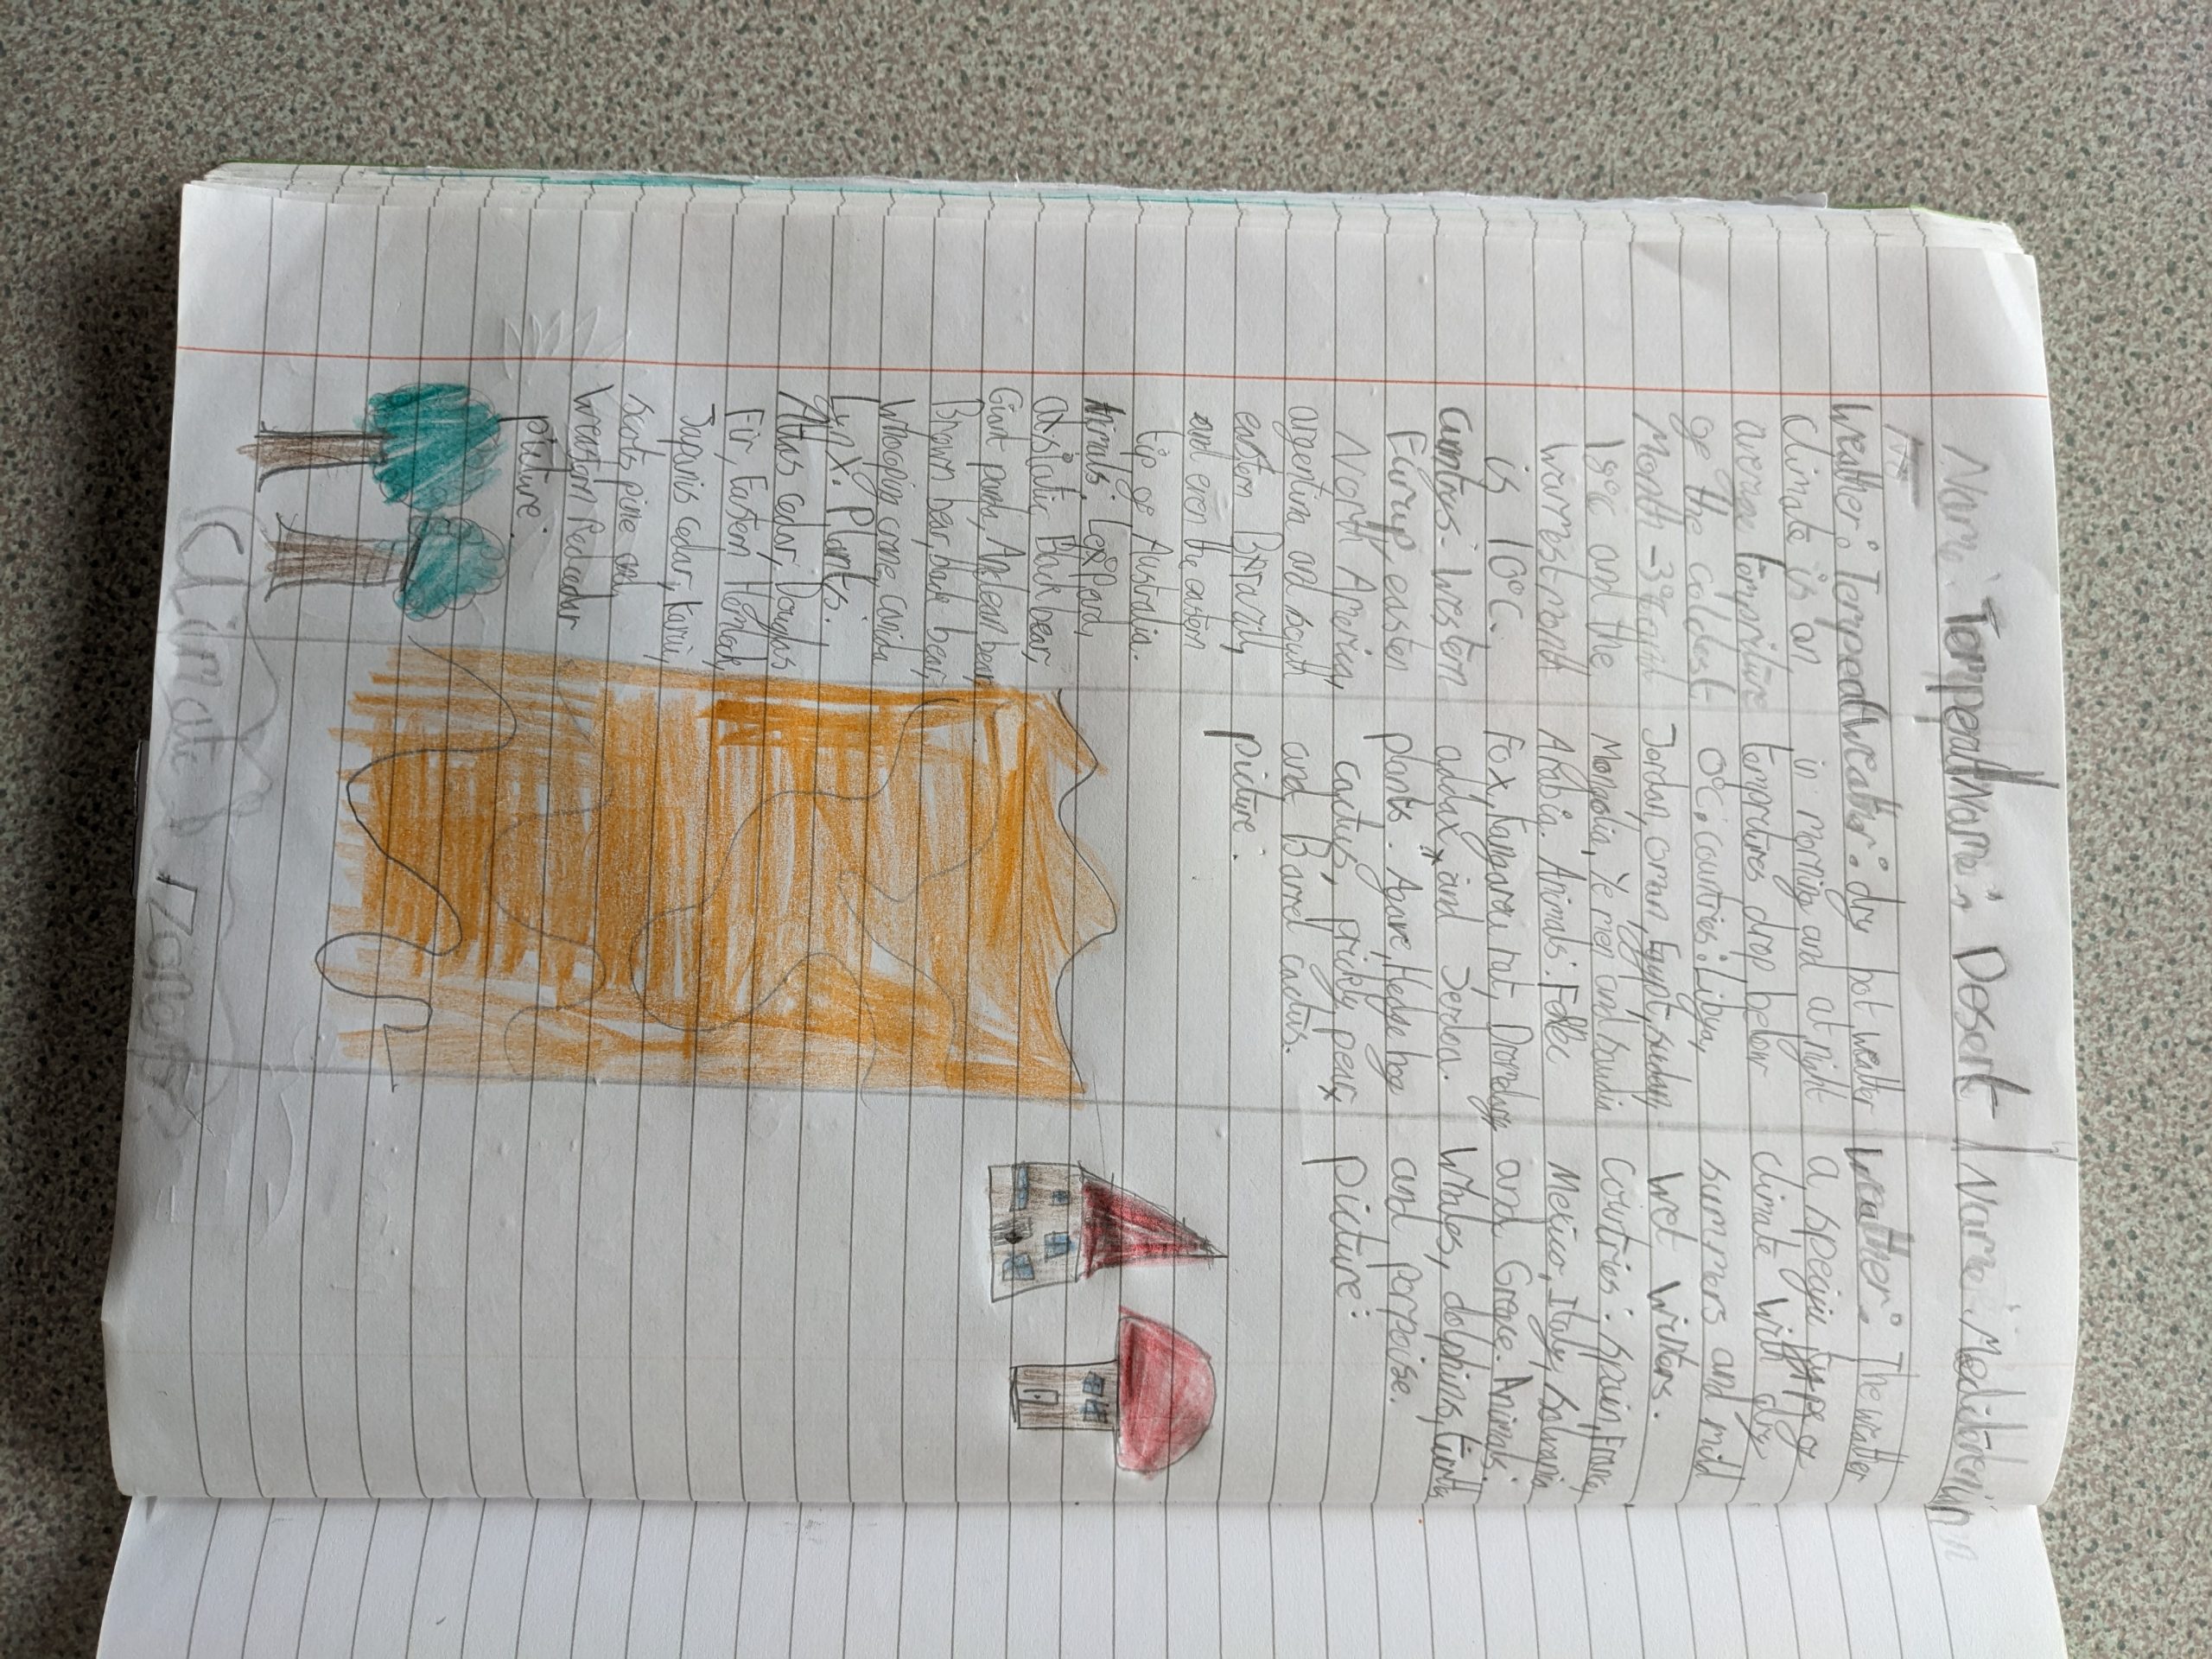 Name: Tempeath
weather: Tempeat
climate is an
averge tempriture
of the coldest
Month -3°C and
18°C and the
warmest month
is 10°C.
Countrys: Western
Europ, eastern
North America,
argentina and south
eastern
and even the eastern
tip of Australia.
Animals: Leopard,
assiatic Black bear,
Giant panda, Andean bear,
Brown bear, black bear,
Whooping crane, canida
Lynx. Plants:
Atlas cedar, Douglas
Fir, Eastern Hemlock,
Japanis cedar, Kauri,
Scots pine and
Wreastern Redcedar
picture:
Name: Desert
weather: dry hot weather
in morning and at night
temporatures drop below
0°C. countries: Libya,
Jordan, oman, Egypt, sudan
Mongolia, Yemen and saudia
Arabia. Animals: Fennec
Fox, kangaroo rat, Dromedary
addax, and Jerboa.
plants: Agave, Hedge hog
cactus, prickly pear
and Barrel cactus.
picture.
Name: Mediterenian
weather: The weather
a specific type of
climate with dry
summers and mild
wet winters.
Countries: spain, France,
Mexico, Italy, Solvania
and Greace. Animals:
Whales, dolphins, turtles
and porpoise.
picture:
Climate Zones